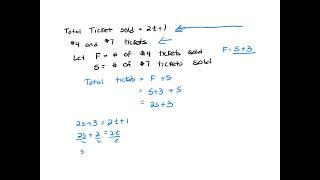 Total Ticket sold = 2t+1
$4 and $7 tickets
Let F = # of $4 tickets sold F = S+3
S = # of $7 tickets sold
Total tickets = F + S
= S+3 + S
= 2S+3
2S+3 = 2t+1
2S + 2 = 2t
2 2 2
S